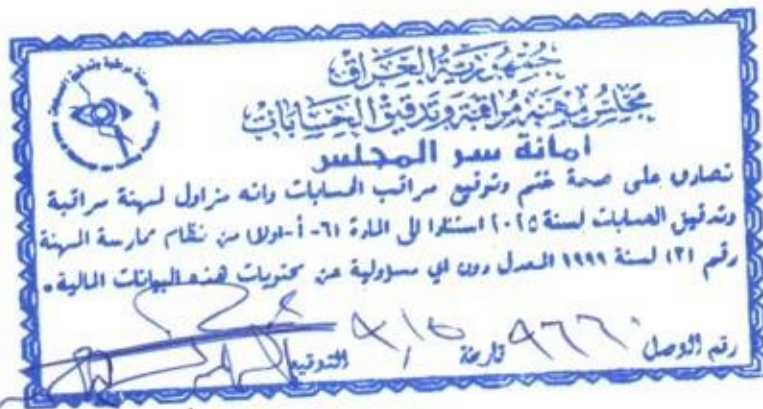 جمهورية العراق
مجلس مهنة مراقبة وتدقيق الحسابات
امانة سر المجلس
نصادق على صحة ختم وتوقيع مراقب الحسابات وانه مزاول لمهنة مراقبة
وتدقيق الحسابات لسنة استنادا الى المادة من نظام ممارسة المهنة
رقم (٣) لسنة ١٩٩٩ المعدل دون اي مسؤولية عن محتويات هذه البيانات المالية.
رقم الوصل ٩٦٦٠ تاريخة التوقيع